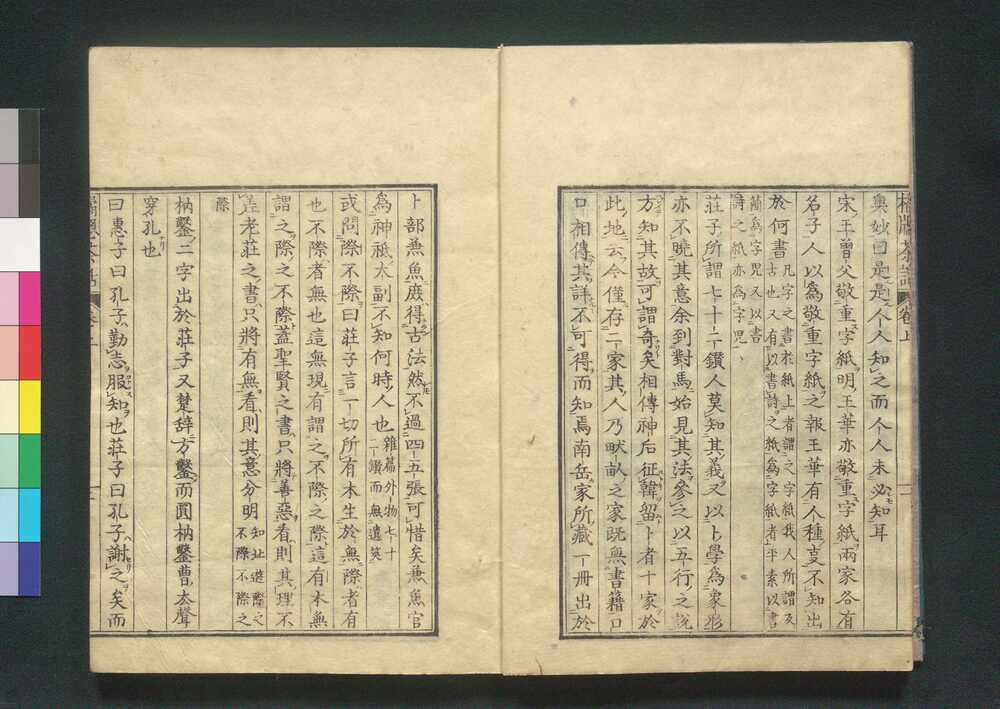 奧妙曰是是个人知之而个人未必知耳
宋王曾父敬重字紙明王華亦敬重字紙兩家各有
名子人以為敬重字紙之報王華有人種麦不知出
於何書凡字之書於紙上者謂之字紙我人所謂及
古也又有以書詩之紙為字紙者平素以書
簡為字児又以書
詩之紙亦為字児
莊子所謂七十二鑽人莫知其義又以卜學為象形
亦不曉其意余到對馬始見其法參之以五行之説
方知其故可謂奇矣相傳神后征韓留卜者十家於
此地云今僅存二家其人乃畎畝之家既無書籍口
口相傳其詳不可得而知焉南岳家所藏一冊出於
卜部兼魚廢得古法然不過四五張可惜矣兼魚官
為神祗太副不知何時人也雜篇外物七十
二鑽而無遺筴
或問際不際曰莊子言一切所有本生於無際者有
也不際者無也這無現有謂之不際之際這有本無
謂之際之不際蓋聖賢之書只將善惡看則其理不
差老莊之書只將有無看則其意分明知北遊際之
不際不際之
際
枘鑿二字出於莊子又楚辞方鑿而圓枘鑿曹太聲
穿孔也
曰惠子曰孔子勤志服知也莊子曰孔子謝之矣而